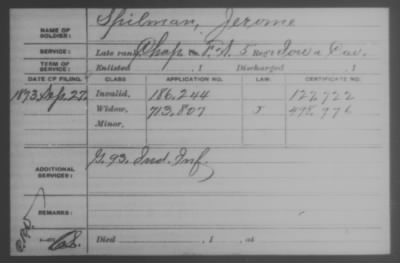 NAME OF SOLDIER: Spilman, Jerome
SERVICE: Late rank Chap Co. F.S. 5 Reg't Iowa Cav.
TERM OF SERVICE: Enlisted , 1 Discharged , 1
DATE OF FILING. CLASS. APPLICATION NO. LAW. CERTIFICATE NO.
1873 Sep. 27. Invalid, 186.244 122,722
Widow, 713.807
Minor,
ADDITIONAL SERVICES: G. 93. Ind. Inf.
REMARKS:
Died , 1 , at